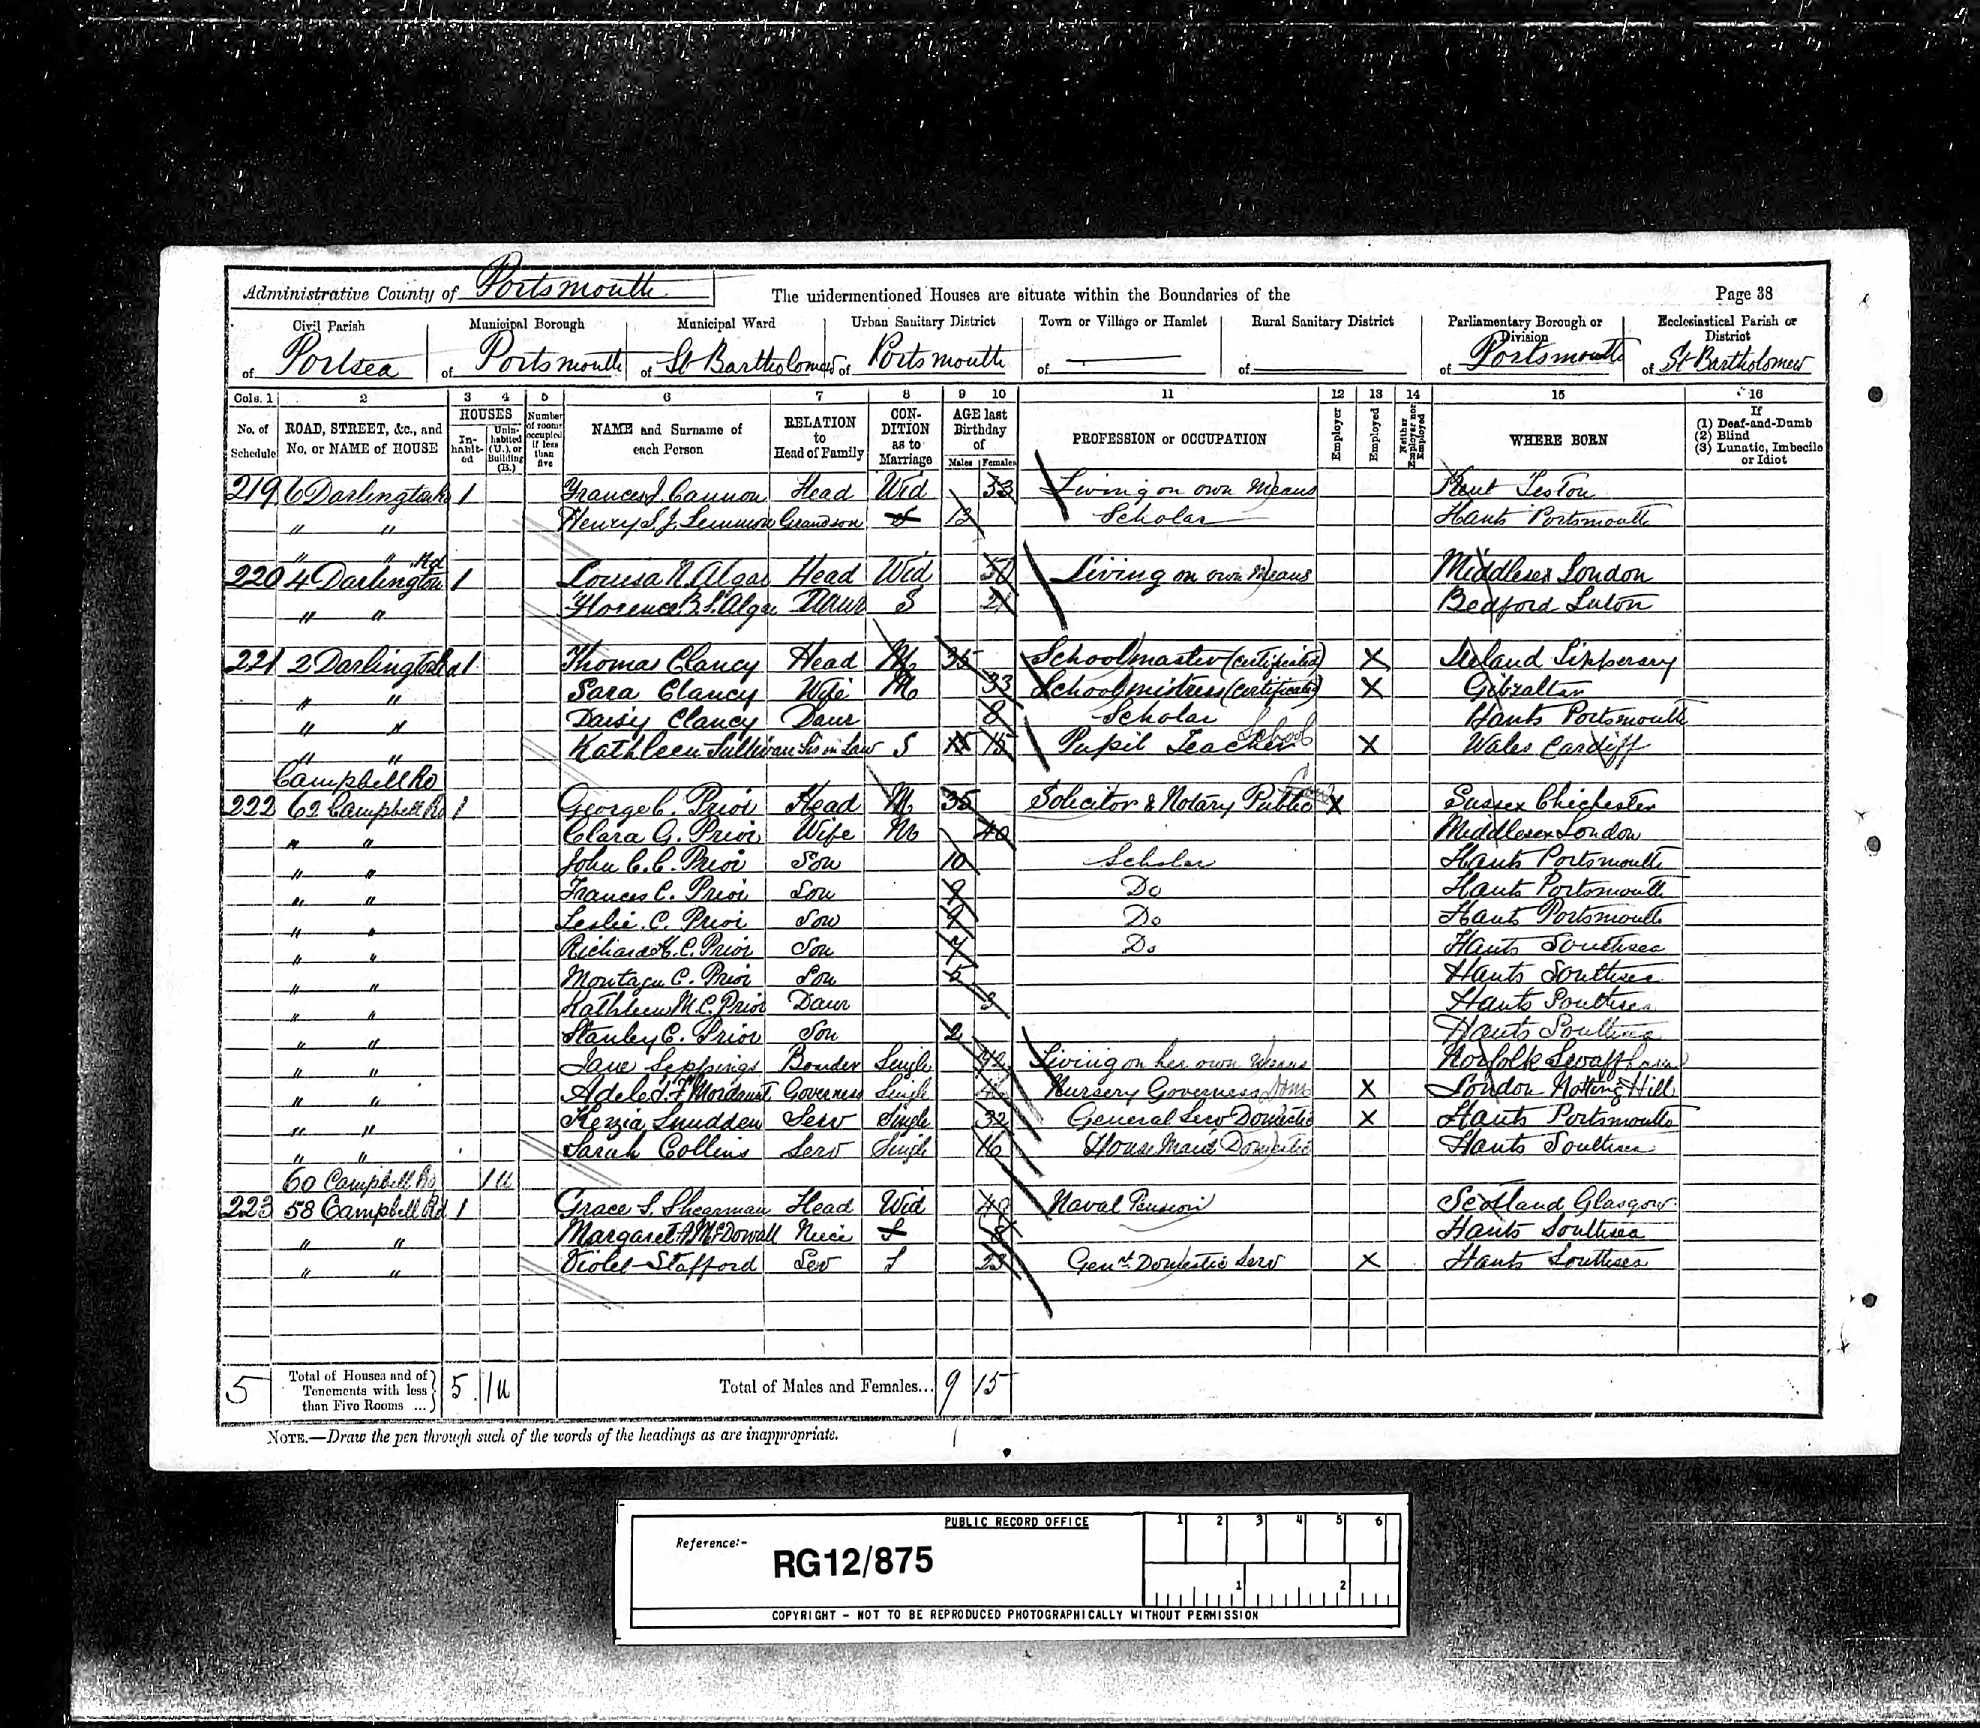 Administrative County of Portsmouth The undermentioned Houses are situate within the Boundaries of the Page 38
Civil Parish Municipal Borough Municipal Ward Urban Sanitary District Town or Village or Hamlet Rural Sanitary District Parliamentary Borough or Division Ecclesiastical Parish or District
of Portsea of Portsmouth of St Bartholomew of Portsmouth of — of — of Portsmouth of St Bartholomew
Cols. 1 2 3 4 5 6 7 8 9 10 11 12 13 14 15 16
No. of Schedule ROAD, STREET, &c., and No. or NAME of HOUSE HOUSES Inhabited Uninhabited (U.), or Building (B.) Number of rooms occupied if less than five NAME and Surname of each Person RELATION to Head of Family CONDITION as to Marriage AGE last Birthday of Males Females PROFESSION or OCCUPATION Employer Employed Neither Employer nor Employed WHERE BORN If (1) Deaf-and-Dumb (2) Blind (3) Lunatic, Imbecile or Idiot
219 6 Darlington Rd 1 Frances J. Cannon Head Wid 53 Living on own Means Kent Teston
" " Henry S. J. Lemmon Grandson S 13 Scholar Hants Portsmouth
" " Rd
220 4 Darlington 1 Louisa N. Algar Head Wid Living on own Means Middlesex London
" " Florence B. S. Algar Daur S 21 Bedford Luton
221 2 Darlington Rd 1 Thomas Clancy Head M 35 Schoolmaster (Certificated) X Ireland Tipperary
" " Sara Clancy Wife M 33 Schoolmistress (Certificated) X Gibraltar
" " Daisy Clancy Daur 8 Scholar Hants Portsmouth
" " Kathleen Sullivan Sis in Law S 15 15 Pupil Teacher School X Wales Cardiff
Campbell Rd
222 62 Campbell Rd 1 George C. Prior Head M 35 Solicitor & Notary Public X Sussex Chichester
" " Clara G. Prior Wife M 40 Middlesex London
" " John C. C. Prior Son 10 Scholar Hants Portsmouth
" " Frances C. Prior Son 9 Do Hants Portsmouth
" " Leslie C. Prior Son 9 Do Hants Portsmouth
" " Richard H. C. Prior Son 7 Do Hants Southsea
" " Montagu C. Prior Son 5 Hants Southsea
" " Kathleen M. C. Prior Daur 3 Hants Southsea
" " Stanley C. Prior Son 2 Hants Southsea
" " Jane Seppings Boarder Single Living on her own Means Norfolk Swaffham
" " Adele S. F. Mordaunt Governess Single Nursery Governess Dom X London Notting Hill
" " Kezia Snudden Serv Single 32 General Serv Domestic X Hants Portsmouth
" " Sarah Collins Serv Single 16 House Maid Domestic Hants Southsea
60 Campbell Rd 1 u
223 58 Campbell Rd 1 Grace S. Shearman Head Wid 40 Naval Pension Scotland Glasgow
" " Margaret A McDowall Niece S 8 Hants Southsea
" " Violet Stafford Serv S 23 Genl Domestic Serv X Hants Southsea
5 Total of Houses and of Tenements with less than Five Rooms ... 5 1u Total of Males and Females... 9 15
NOTE.—Draw the pen through such of the words of the headings as are inappropriate.
PUBLIC RECORD OFFICE
Reference:-
RG12/875
1 2 3 4 5 6
1 2
COPYRIGHT - NOT TO BE REPRODUCED PHOTOGRAPHICALLY WITHOUT PERMISSION